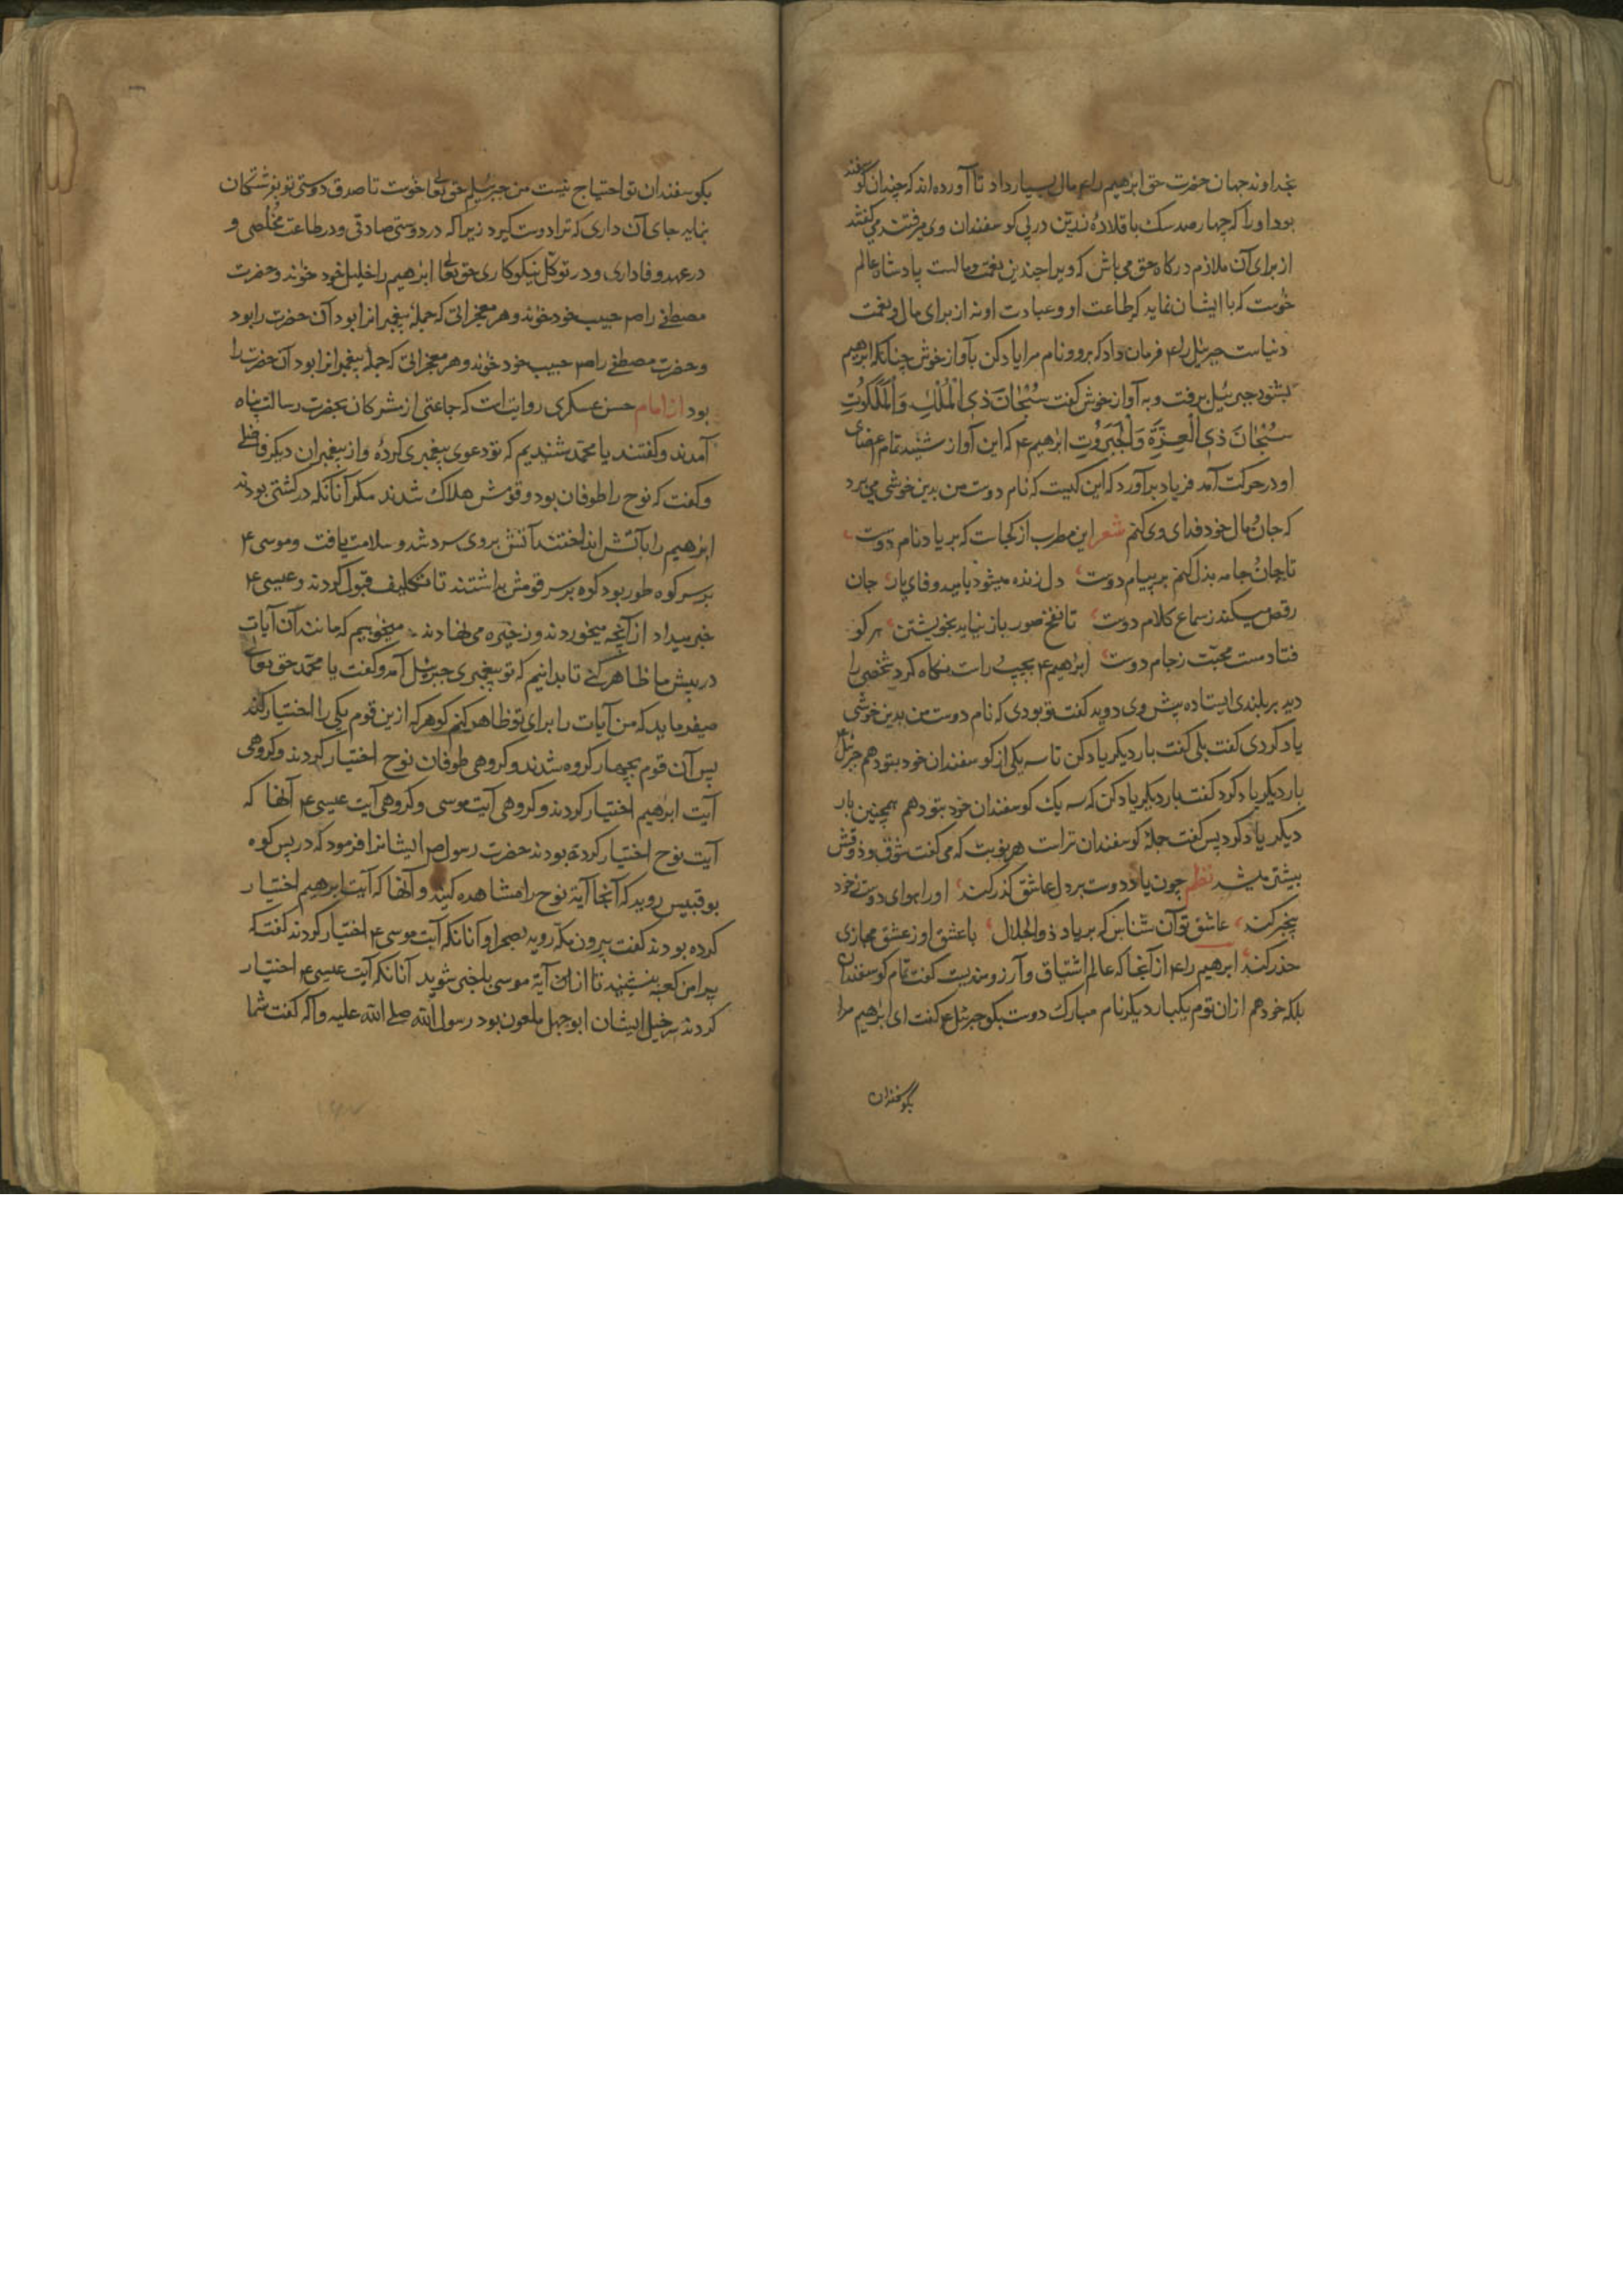 بخداوند جهان حضرت حق ابرهیم را ع مال بسیار داد تا آورده‌اند که چندان گوسفند
بود او را که چهار صد سک با قلادهٔ زرین در پی کوسفندان وی میرفتند می کفتند
از برای آن ملازم درکاه حق می باش که ویرا چندین نعمت و مالست پادشاه عالم
خوٰست که با ایشان نماید که طاعت او و عبادت او نه از برای مال و نعمت
دنیاست جبرئیل را ع فرمان داد که برو و نام مرا یاد کن بآواز خوش چنانکه ابرهیم
بشنود جبرئیل برفت و به آواز خوش کفت سُبْحَانَ ذِی الْمُلْكِ وَالْمَلَكُوتِ
سُبْحَانَ ذِی الْعِزَّةِ وَالْجَبَرُوتِ ابرٰهیم ع که این آواز شنید تمام اعضای
او در حرکت آمد فریاد برآورد که این کیست که نام دوست من بدین خوشی می برد
که جان و مال خود فدای وی کنم شعر این مطرب از کجاست که بر یاد نام دوست
تا جان و جامه بذل کنم بر پیام دوست دل زنده میشود بامید وفای یار جان
رقص میکند ز سماع کلام دوست تا نفخ صور باز نیاید بخویشتن هر کو
فتاد مست محبّت ز جام دوست ابرٰهیم ع بچپ و راست نکاه کرد شخصی را
دید بر بلندی ایستاده پیش وی دوید کفت تو بودی که نام دوست من بدین خوشی
یاد کردی کفت بلی کفت بار دیکر یاد کن تا سه یکی از کوسفندان خود بتو دهم جبرئیل ع
بار دیکر یاد کرد کفت بار دیکر یاد کن که سه یك کوسفندان خود بتو دهم همچنین بار
دیکر یاد کرد پس کفت جملهٔ کوسفندان تراست هر نوبت که می کفت شوق و ذوقش
بیشتر میشد نظم چون یاد دوست بر دل عاشق کذر کند او را هوای دوست ز خود
بیخبر کند عاشق تو آن شناس که بر یاد ذوالجلال با عشق او ز عشق مجازی
حذر کند ابرهیم را ع از آنجا که عالم اشتیاق و آرزومندیست کفت تمام کوسفندان
بلکه خود هم از ان توم یکبار دیکر نام مبارك دوست بکو جبرئیل ع کفت ای ابرٰهیم مرا
بگوسفندان
بکوسفندان تو احتیاج نیست من جبرئیلم حق تعٰا خوٰست تا صدق دوستی تو بفرشتکان
نماید جای آن داری که ترا دوست کیرد زیراکه در دوستی صادقی و در طاعت مخلصی و
در عهد وفاداری و در توکّل نیکوکاری حق تعٰا ابرٰهیم را خلیل خود خوٰند و حضرت
مصطفٰی را ص حبیب خود خوٰند و هر معجزاتی که جملهٔ پیغمبرانرا بود آن حضرت را بود
و حضرت مصطفٰی را ص حبیب خود خوٰند و هر معجزاتی که جملهٔ پیغمبرانرا بود آن حضرت را
بود از امام حسن عسکری روایتست که جماعتی از مشرکان بحضرت رسالت پناه
آمدند و کفتند یا محمّد شنیدیم که تو دعوی پیغمبری کردهٔ و از پیغمبران دیکر فاضلی
و کفت که نوح را طوفان بود و قومش هلاک شدند مکر آنانکه در کشتی بودند
ابرٰهیم را بآتش انداختند آتش بر وی سرد شد و سلامت یافت و موسی ع
بر سر کوه طور بود کوه بر سر قومش بداشتند تا تکلیف قبول کردند و عیسی ع
خبر میداد از آنچه میخوردند و ذخیره می نهادند میخوٰهیم که مانند آن آیات
در پیش ما ظاهر کنی تا بدانیم که تو پیغمبری جبرئیل آمد و کفت یا محمّد حق تعالی
میفرماید که من آیات را برای تو ظاهر کنم کو هر که ازین قوم یکی را اختیار کنند
پس آن قوم بچهار کروه شدند و کروهی طوفان نوح اختیار کردند و کروهی
آیت ابرٰهیم اختیار کردند و کروهی آیت موسی و کروهی آیت عیسی ع آنها که
آیت نوح اختیار کرده بودند حضرت رسول ص ایشانرا فرمود که در پس کوه
بوقبیس روید که آنجا آیهٔ نوح را مشاهده کنید و آنها که آیت ابرهیم اختیار
کرده بودند کفت بیرون مکّه روید بصحرا و آنانکه آیت موسی ع اختیار کردند کفت که
پیرامن کعبه بنشینید تا از ان آیهٔ موسی باخبر شوید آنانکه آیت عیسی ع اختیار
کردند سرخیل ایشان ابوجهل ملعون بود رسول الله صلی الله علیه و آله کفت شما